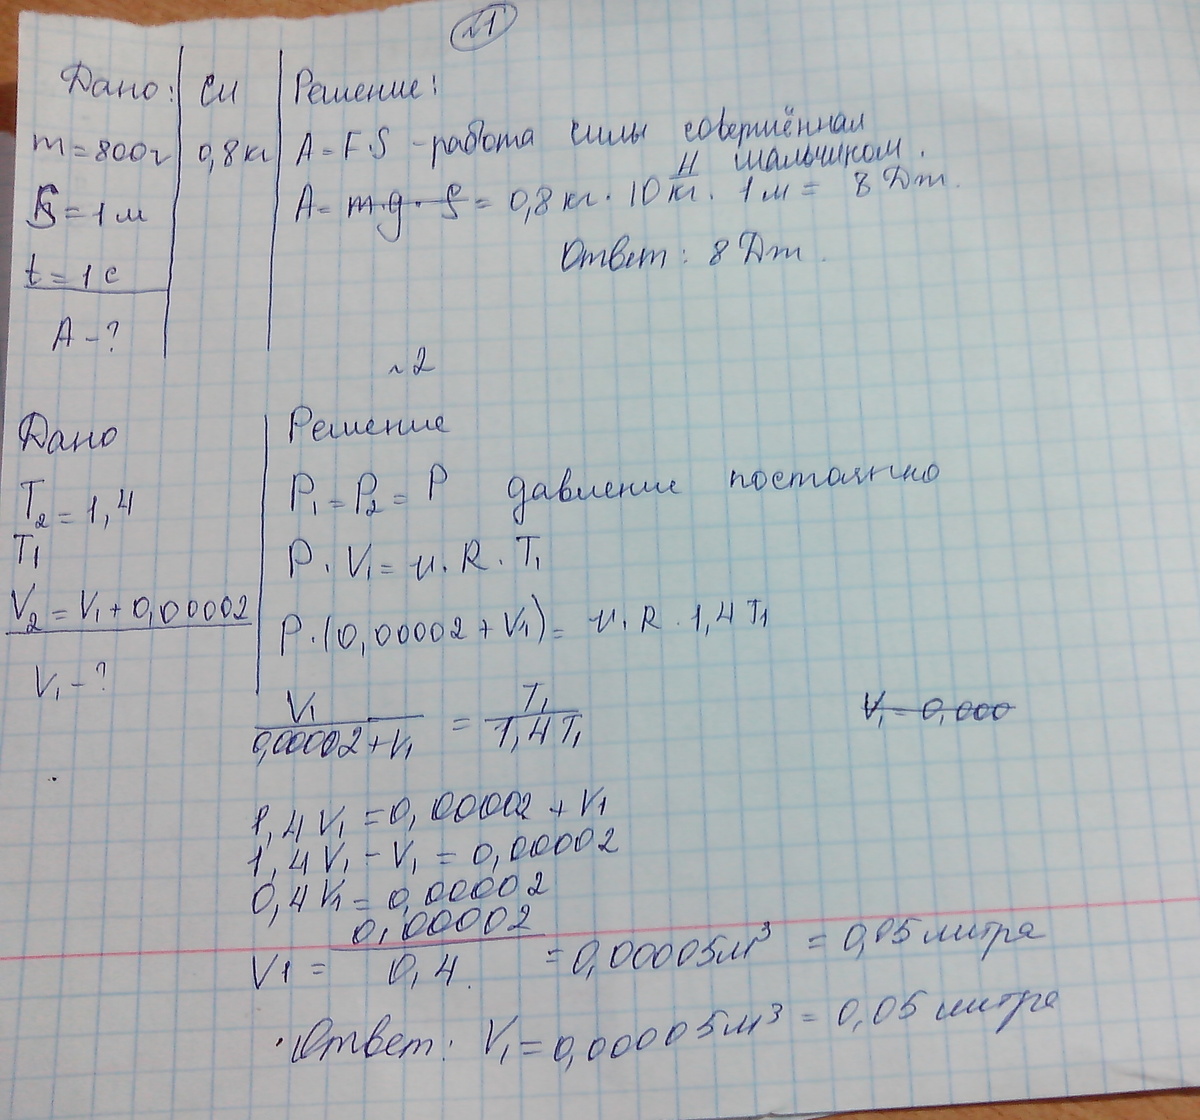 №1
Дано: СИ Решение:
m=800г 0,8 кг A=F·S - работа силы совершённая мальчиком.
S=1м A= m·g·S = 0,8 кг · 10 Н/кг · 1м = 8 Дж.
t=1с Ответ: 8 Дж.
A-?
№2
Дано Решение
T₂/T₁=1,4 P₁=P₂=P давление постоянно
P·V₁=ν·R·T₁
V₂=V₁+0,00002
P·(0,00002+V₁)=ν·R·1,4T₁
V₁-?
V₁/(0,00002+V₁) = T₁/(1,4T₁) V₁=0,000
1,4V₁=0,00002+V₁
1,4V₁-V₁=0,00002
0,4V₁=0,00002
V1 = 0,00002/0,4 = 0,00005м³ = 0,05 литра
Ответ: V₁=0,00005м³ = 0,05 литра